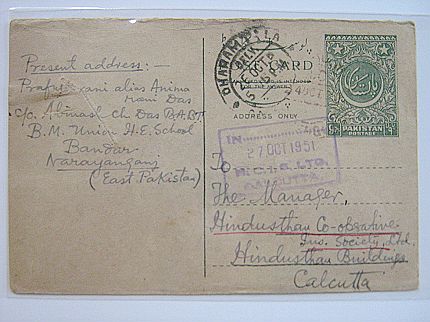 Present address:-
Prafulla rani alias Anima
rani Das
c/o. Abinash Ch Das B.A.B.T
B. M. Union H. E. School
Bandar
Narayanganj
(East Pakistan)
DHARAMTALA
OCT
CARD
ADDRESS ONLY
PAKISTAN
POSTAGE
IN
27 OCT 1951
LTD.
CALCUTTA
To
The Manager,
Hindusthan Co-operative
Ins. Society, Ltd.
Hindusthan Buildings
Calcutta